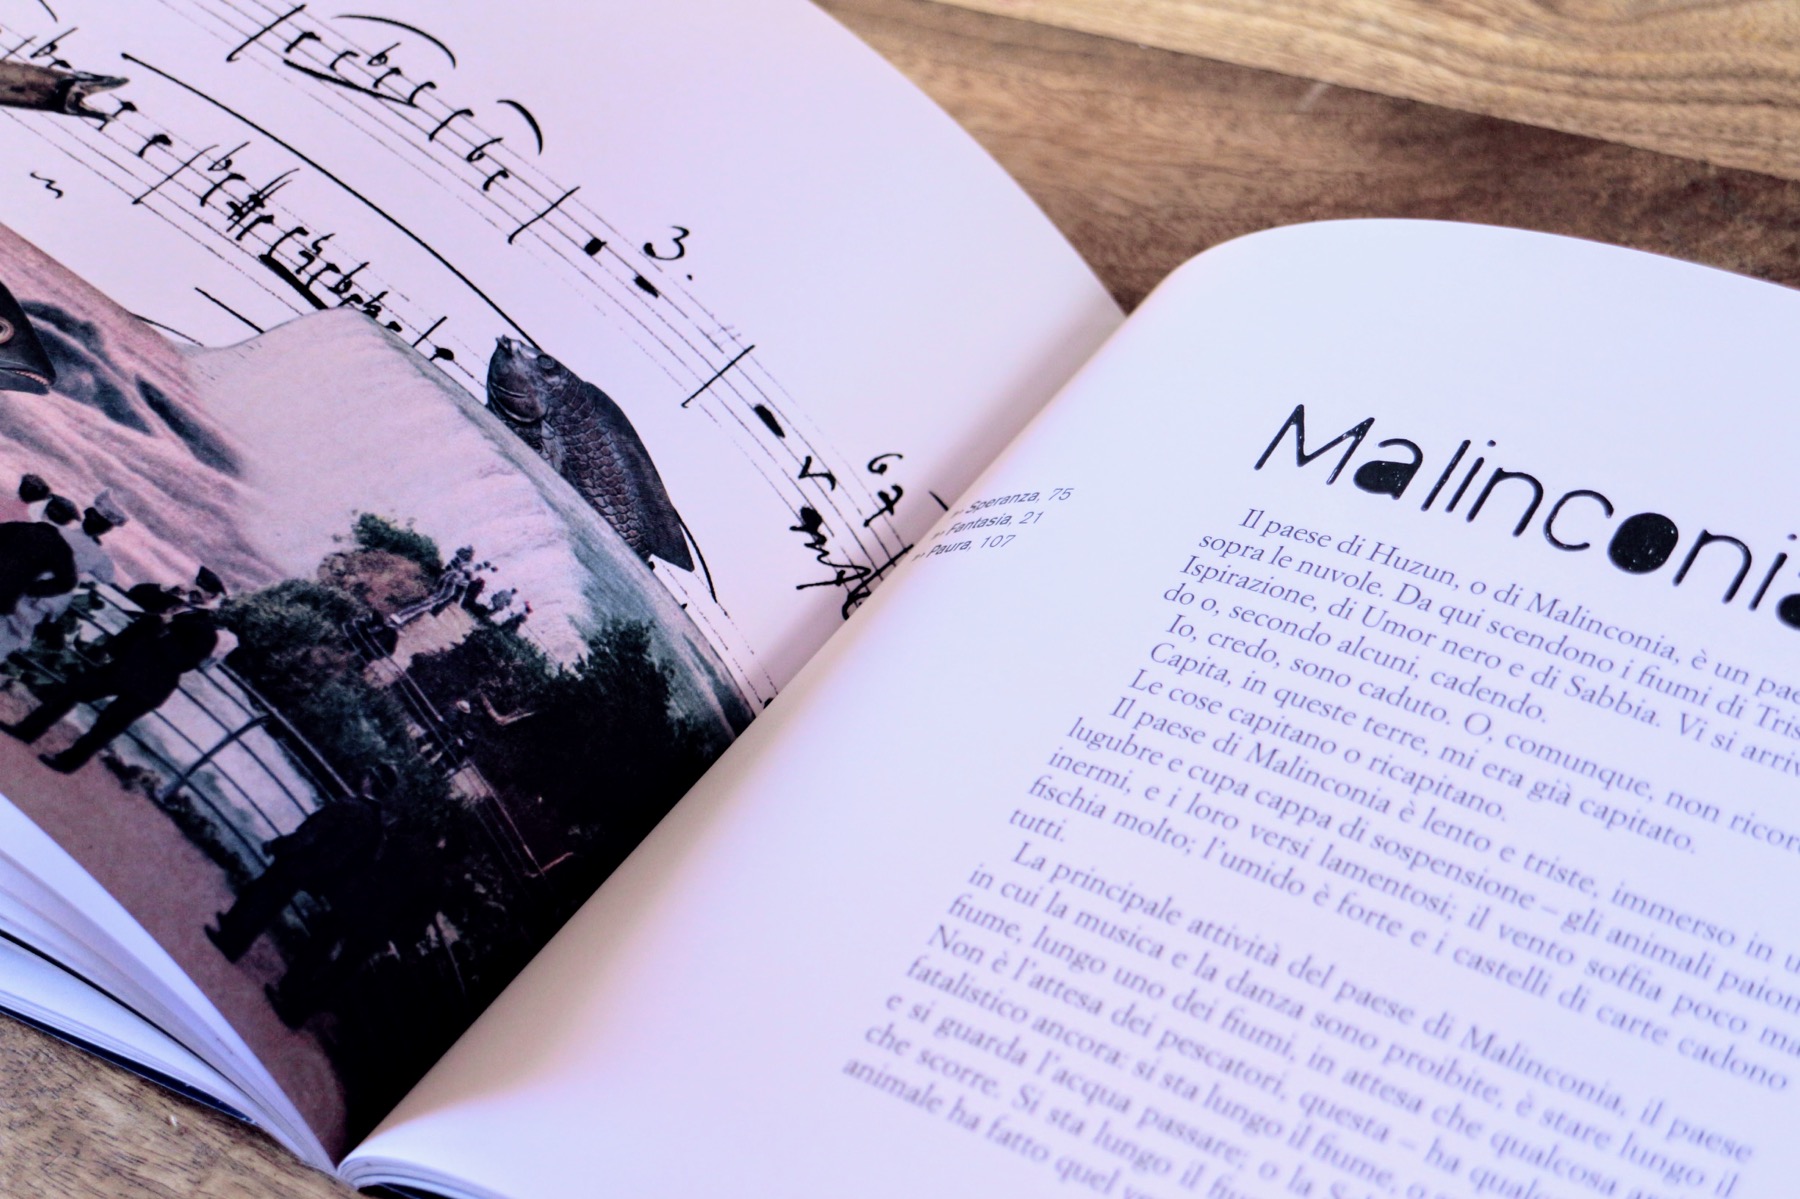 3.
6
7
Speranza, 75
Fantasia, 21
Paura, 107
Malinconia
Il paese di Huzun, o di Malinconia, è un
sopra le nuvole. Da qui scendono i fiumi di
Ispirazione, di Umor nero e di Sabbia. Vi si
do o, secondo alcuni, cadendo.
Io, credo, sono caduto. O, comunque, non
Capita, in queste terre, mi era già capitato.
Le cose capitano o ricapitano.
Il paese di Malinconia è lento e triste, immerso in
lugubre e cupa cappa di sospensione – gli animali
inermi, e i loro versi lamentosi; il vento soffia poco
fischia molto; l'umido è forte e i castelli di carte cadono
tutti.
La principale attività del paese di Malinconia, il paese
in cui la musica e la danza sono proibite, è stare lungo il
fiume, lungo uno dei fiumi, in attesa che qualcosa
Non è l'attesa dei pescatori, questa – ha
fatalistico ancora: si sta lungo il fiume,
e si guarda l'acqua passare; o la
che scorre. Si sta lungo il
animale ha fatto quel